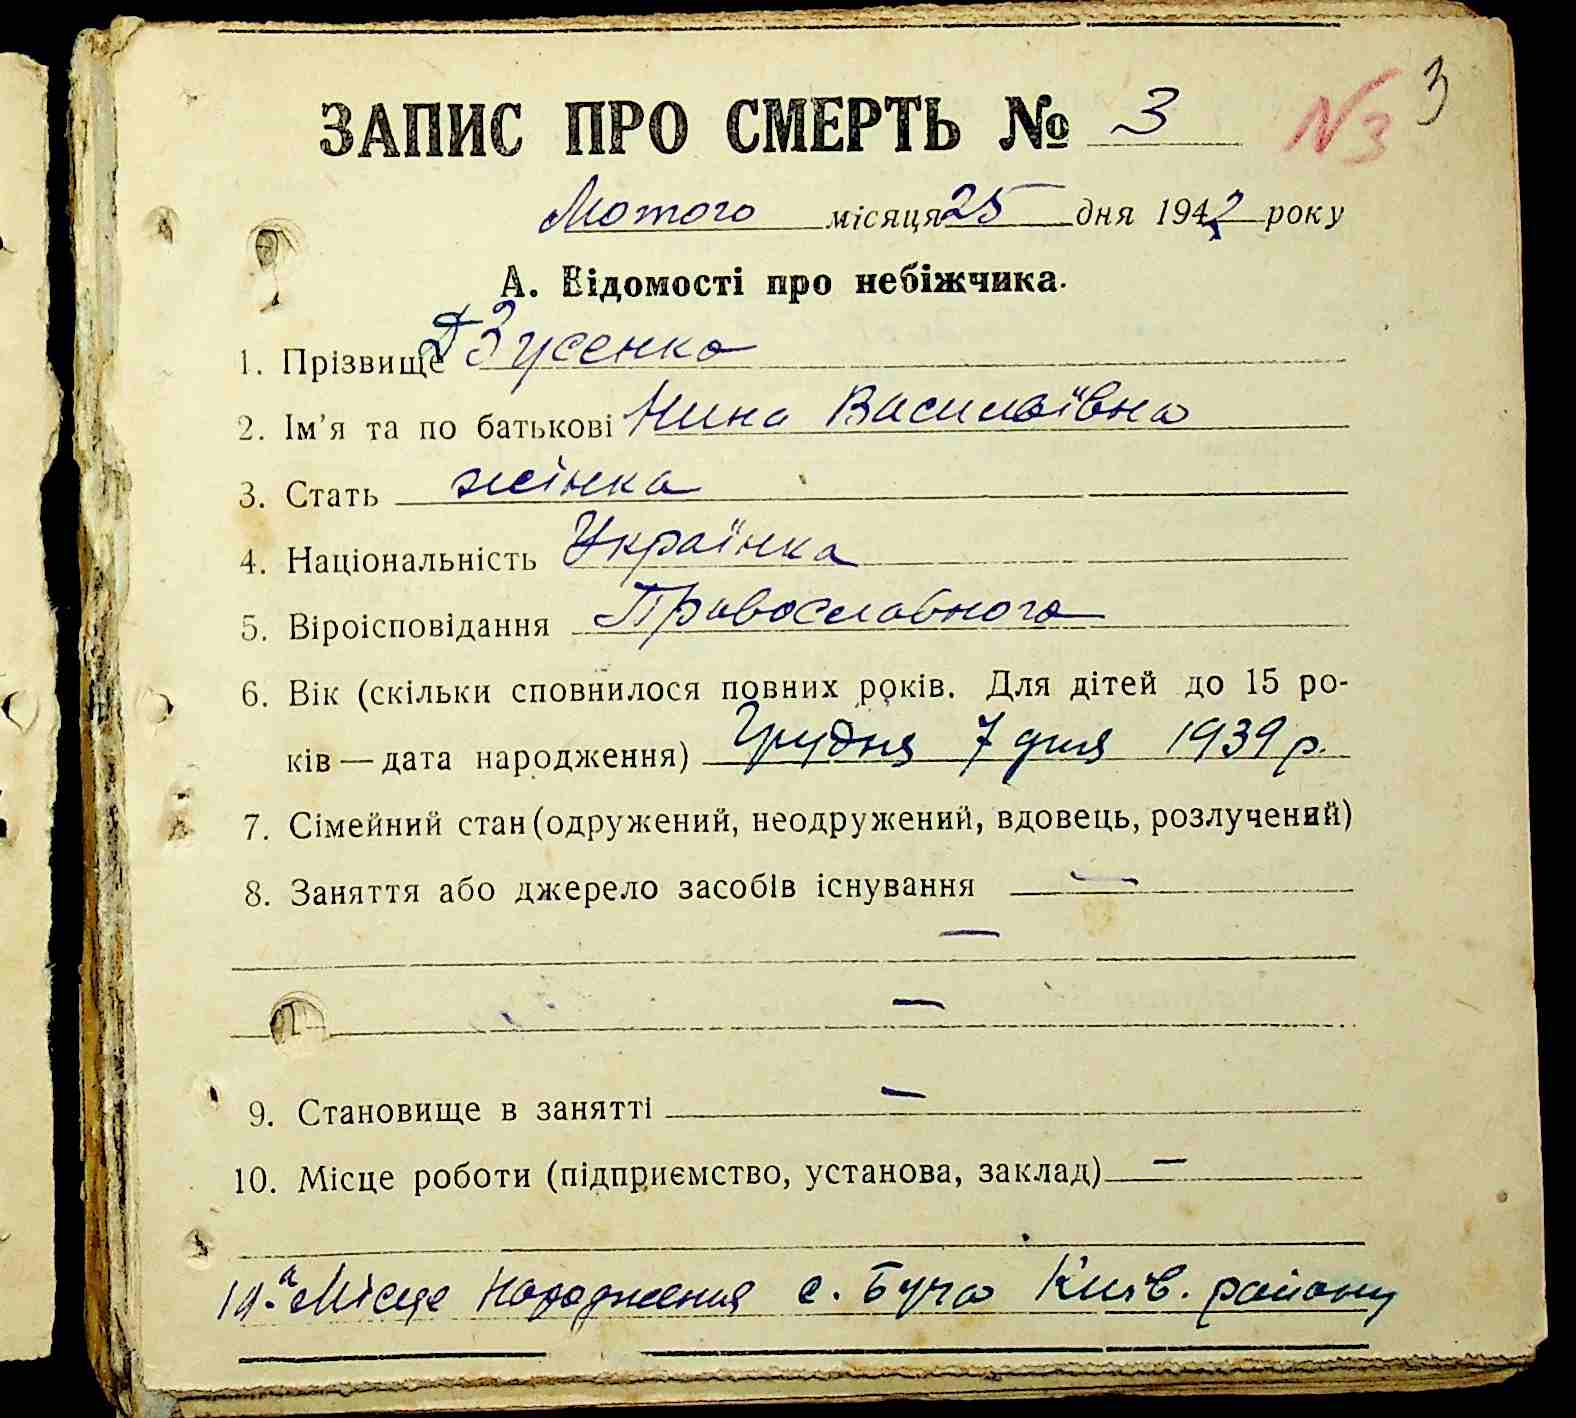 ЗАПИС ПРО СМЕРТЬ № 3 N3 3
Лютого місяця 25 дня 1942 року
А. Відомості про небіжчика.
1. Прізвище Дзусенко
2. Ім'я та по батькові Нина Василівна
3. Стать жінка
4. Національність Українка
5. Віроісповідання Православного
6. Вік (скільки сповнилося повних років. Для дітей до 15 ро-
ків — дата народження) Грудня 7 дня 1939 р.
7. Сімейний стан (одружений, неодружений, вдовець, розлучений)
8. Заняття або джерело засобів існування —
—
—
9. Становище в занятті —
10. Місце роботи (підприємство, установа, заклад) —
10.а Місце народження с. Буча Київ. району